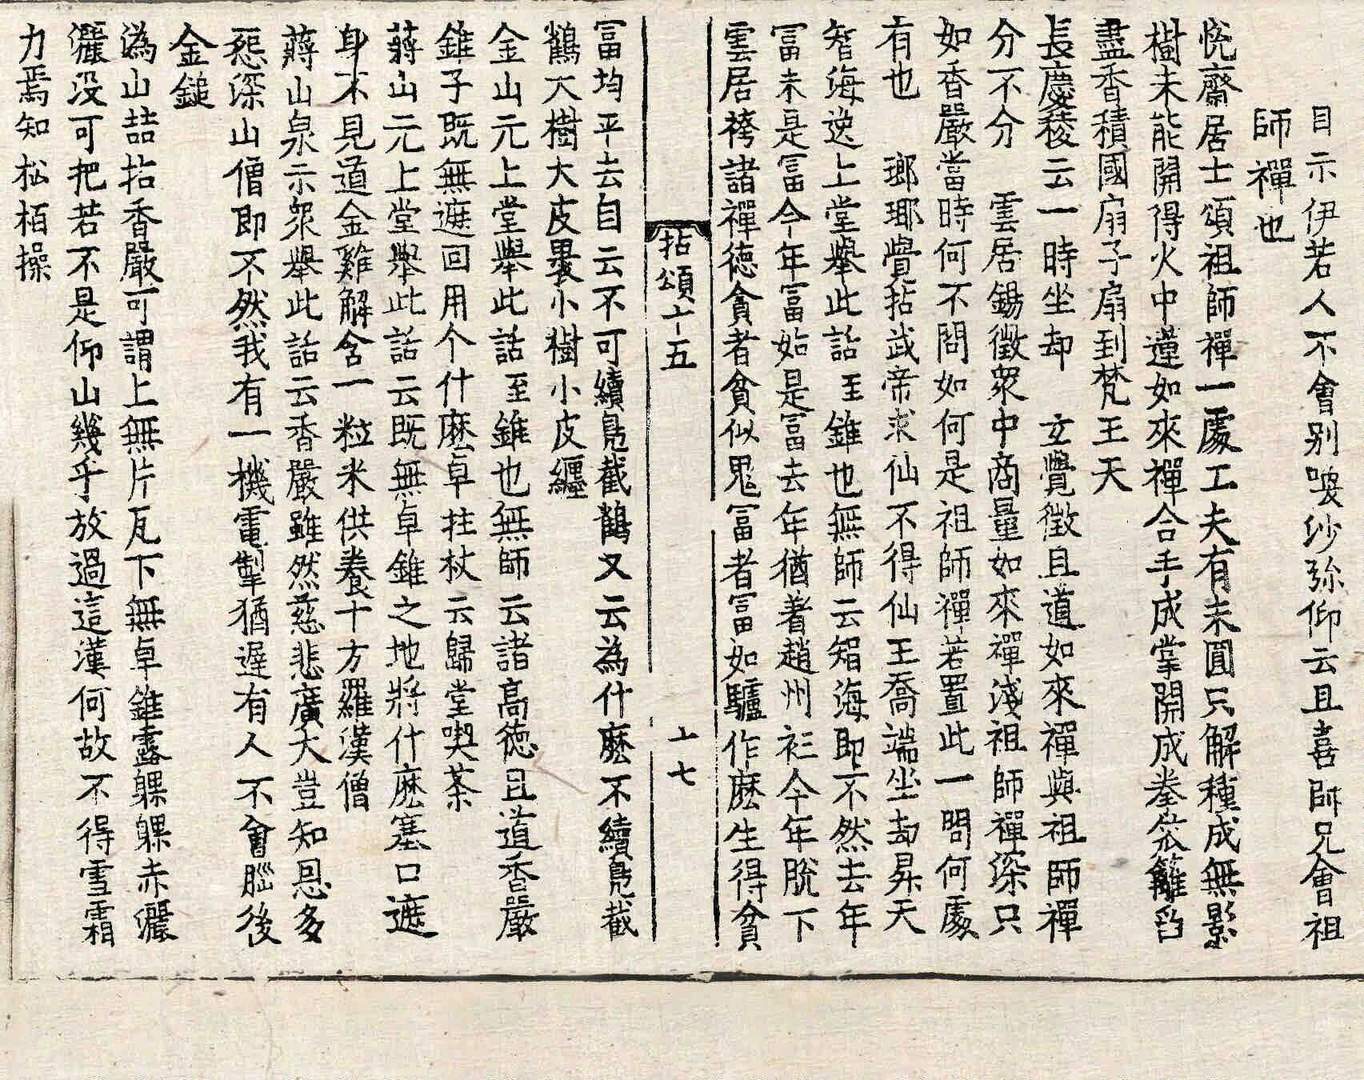 目示伊若人不會別喚沙弥仰云且喜師兄會祖
師禪也
悅齋居士頌祖師禪一處工夫有未圓只解種成無影
樹未能開得火中蓮如來禪合手成掌開成拳笊籬舀
盡香積國扇子扇到梵王天
長慶稜云一時坐却　玄覺徵且道如來禪與祖師禪
分不分　雲居錫徵衆中商量如來禪淺祖師禪深只
如香嚴當時何不問如何是祖師禪若置此一問何處
有也　瑯琊覺拈武帝求仙不得仙王喬端坐却昇天
智海逸上堂舉此話至錐也無師云智海即不然去年
冨未是冨今年冨始是冨去年猶著趙州衫今年脫下
雲居袴諸禪德貧者貧似鬼冨者冨如驢作麽生得貧
拈頌十五　十七
冨均平去自云不可續鳧截鶴又云為什麽不續鳧截
鶴大樹大皮裹小樹小皮纏
金山元上堂舉此話至錐也無師云諸高德且道香嚴
錐子既無遮回用个什麽卓拄杖云歸堂喫茶
蔣山元上堂舉此話云既無卓錐之地將什麽塞口遮
身不見道金雞解含一粒米供養十方羅漢僧
蔣山泉示衆舉此話云香嚴雖然慈悲廣大豈知恩多
怨深山僧即不然我有一機電掣猶遲有人不會腦後
金鎚
溈山喆拈香嚴可謂上無片瓦下無卓錐露躶躶赤灑
灑没可把若不是仰山幾乎放過這漢何故不得雪霜
力焉知松栢操